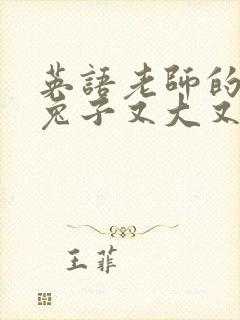 英語老師的
兔子又大又
王菲